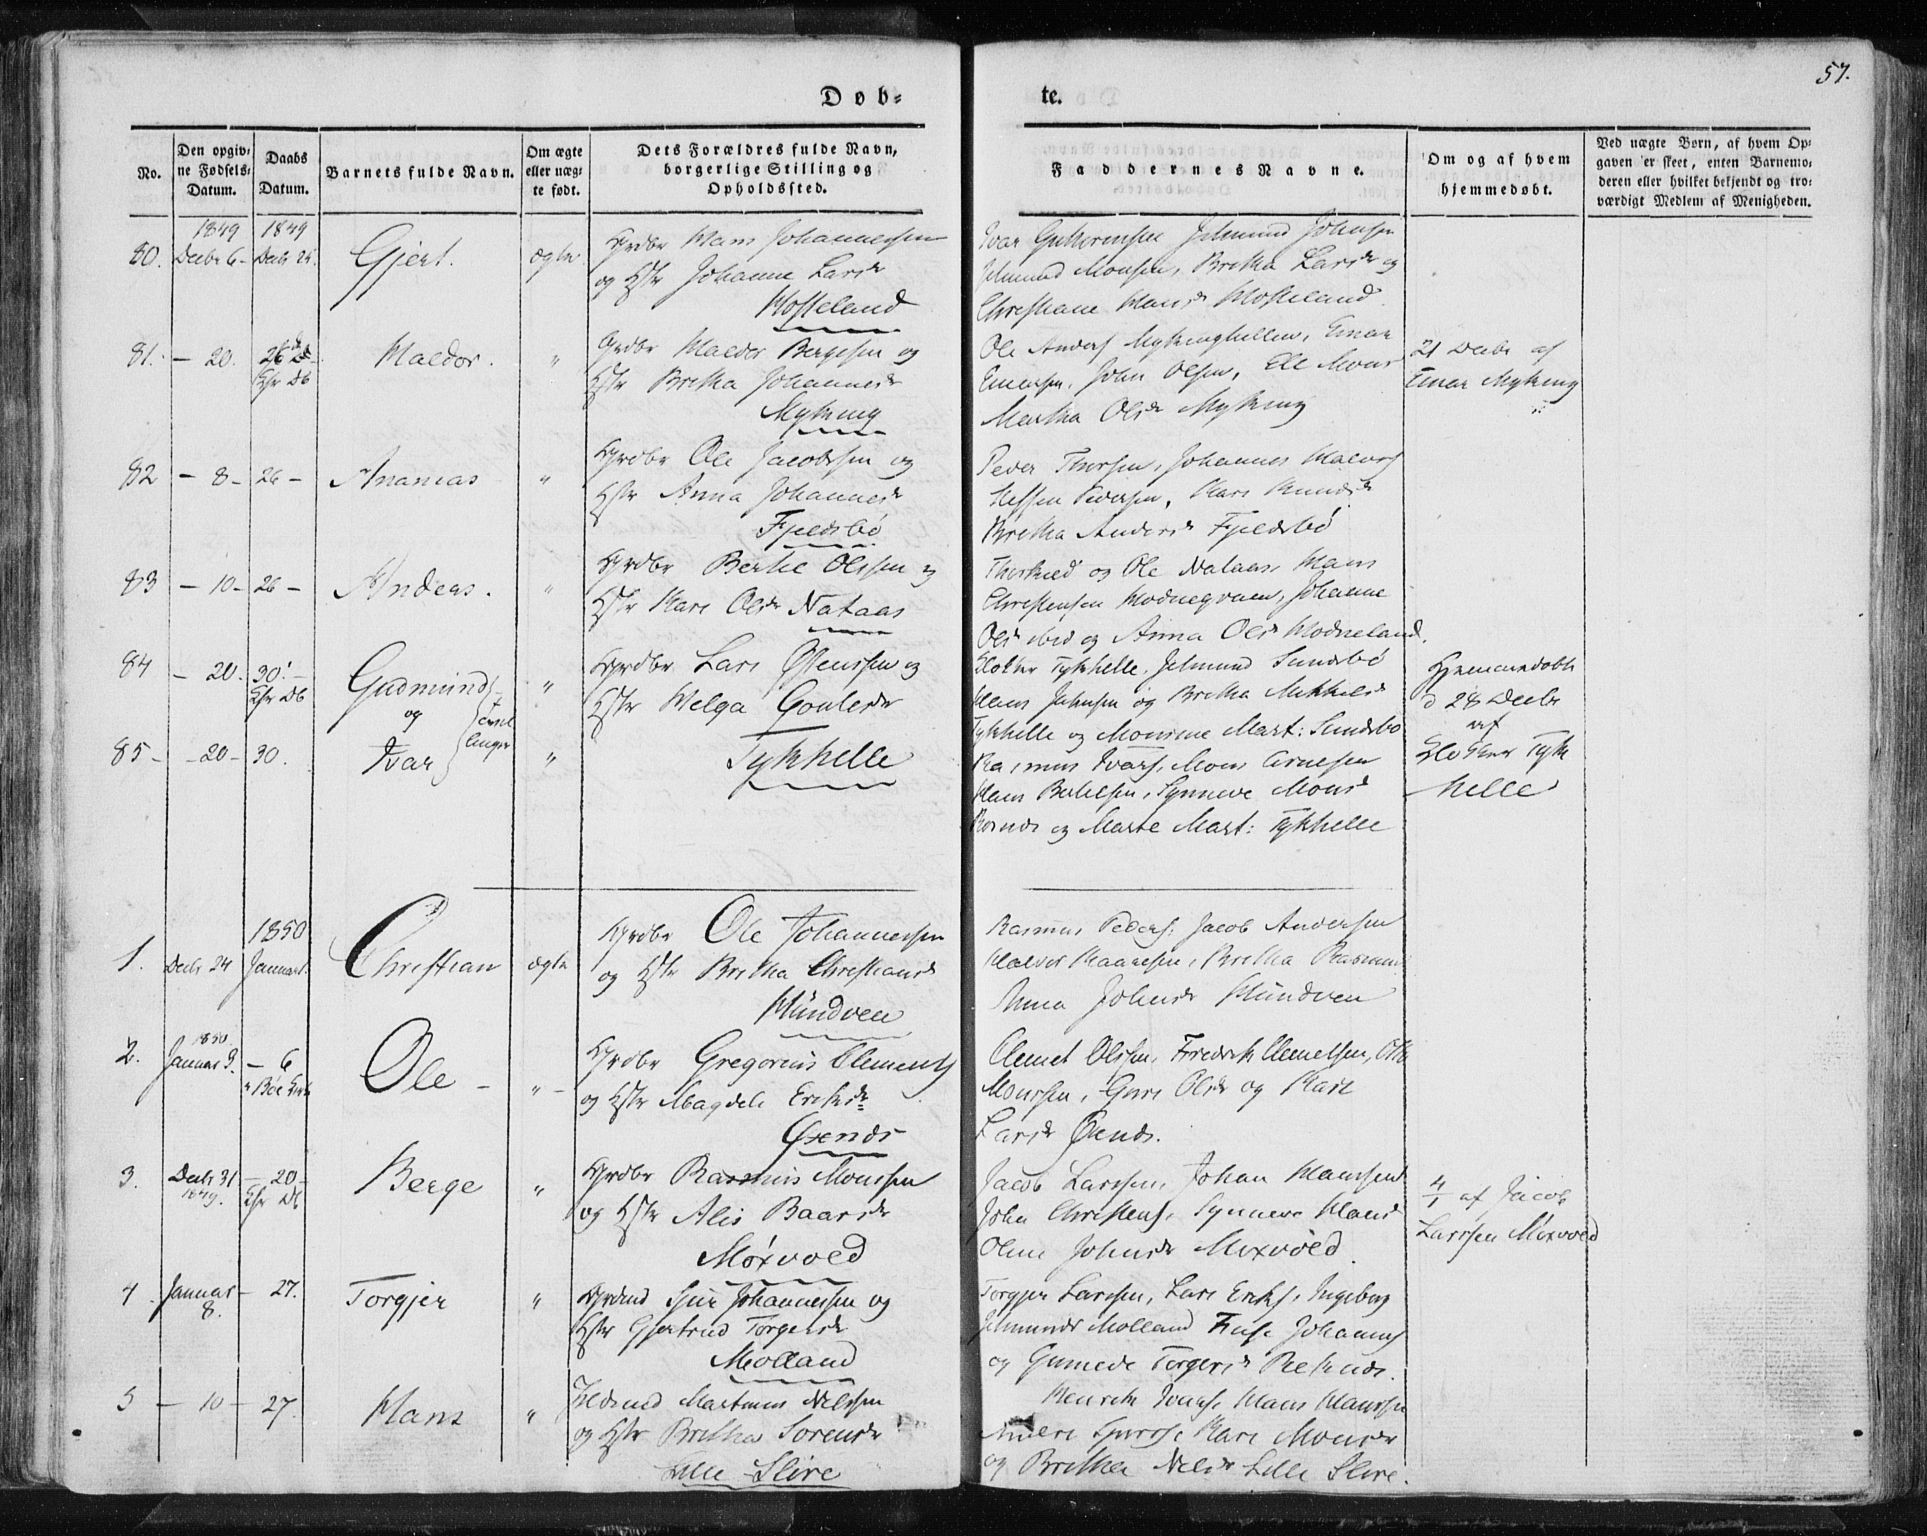 57.
Døb-
te.
No.
Den opgiv-
ne Fødsels-
Datum.
Daabs
Datum.
Barnets fulde Navn.
Om ægte
eller uæg-
te født.
Dets Forældres fulde Navn,
borgerlige Stilling og
Opholdssted.
Faddernes Navne.
Om og af hvem
hjemmedøbt.
Ved uægte Børn, af hvem Op-
gaven er skeet, enten Barnemo-
deren eller hvilket bekjendt og tro-
værdigt Medlem af Menigheden.
1849 1849
80. Decbr 6 - Decbr 26. Gjert. ægte Grdbr Hans Johannessen
og Hstr Johanne Larsdr
Hosteland
Jelmund Johnsen
Jelmund Monsen, Britha Larsdr og
Christiane Hansdr Hosteland
81. - 20. 26 Haldor. " Grdbr Haldor Bergesen og
Hstr Britha Johannesdr
Myking
Ole Anders Mykinghellen, Einar
Einersen, John Olsen, Eli Mons
Martha Olsdr Myking
21 Decbr af
Einar Myking
82 - 8 - 26 - Ananias " Grdbr Ole Jacobsen og
Hstr Anna Johannesdr
Fjeldsbø
Peder Thorsen, Johannes Halvors
Steffen Pedersen, Kari Knudsdr
Britha Andersdr Fjeldsbø
83 - 10 - 26 - Andeas. " Grdbr Bertel Olssen og
Hstr Kari Olsdr Nataas
og Ole Nataas, Hans
Christensen Johanne
Olsdr ibid og Anna Olsdr Hodneland.
84 - 20. 30. - Gudmund " Grdbr Lars Østenssen og
og
Hstr Helga Goutesdr
Tykhelle
Klokker Tykhelle, Jelmund Sundsbø
Hans Johnsen og Britha Mikkelsdr
Tykhelle og Monsine Mart: Sundsbø
Hjemmedøbte
d 28 Decbr
af
Klokker Tyk
helle
85 - - 20 - 30. Ivar "
Rasmus Ivars, Mons Arnesen
Hans Bertelsen, Synneve Mons
og Marte Mart: Tykhelle
1850
1. Decbr 24 Januar 1. Christian ægte Grdbr Ole Johannessen
og Hstr Britha Christiansdr
Hundven
Rasmus Peders: Jacob Andersen
Halvor Haavesen, Britha Rasmus
Anna Johnsdr Hundven
1850
2. Januar 3. - 6 Ole - " - Grdbr Gregorius Clements
i Bøe Kirke
og Hstr Magdeli Eriksdr
Øxendr
Clemet Olsen, Fredrik Clemetsen, Ole
Monssen, Guri Olsdr og Kari
Larsdr
3. Decbr 31 - 20 - Berge " Grdbr Rasmus Monssen
1849.
og Hstr Alis Baarsdr
Moxvold
Jacob Larssen, Johan Hanssen
John Christens, Synneve Hans
Oline Johnsdr Moxvold
4/1 af Jacob
Larssen Moxvold
4. Januar - 27. Torgjer " Grdmd Sjur Johannessen og
8.
Hstr Gjertrud Torgersdr
Molland
Torgjer Larssen, Lars Eriks, Ingeborg
Jelmunds Molland Johannes
og Torgersdr
5 - 10 - 27. Hans " Martinus Nilssen
og Hstr Britha Sørensdr
Lille Slire
Henrik Ivars, Hans Hanssen
Kari Monsdr
og Britha Nilsdr Lille Slire.